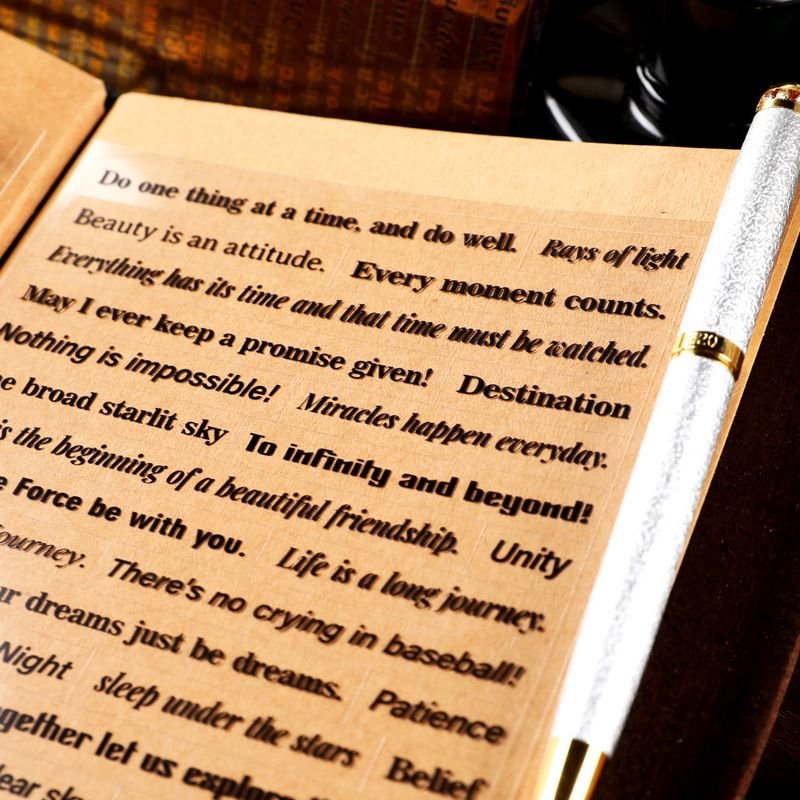 Do one thing at a time, and do well. Rays of light
Beauty is an attitude. Every moment counts.
Everything has its time and that time must be watched.
May I ever keep a promise given! Destination
Nothing is impossible! Miracles happen everyday.
broad starlit sky To infinity and beyond!
is the beginning of a beautiful friendship. Unity
Force be with you. Life is a long journey.
Journey. There's no crying in baseball!
dreams just be dreams. Patience
Night sleep under the stars Belief
let us explore